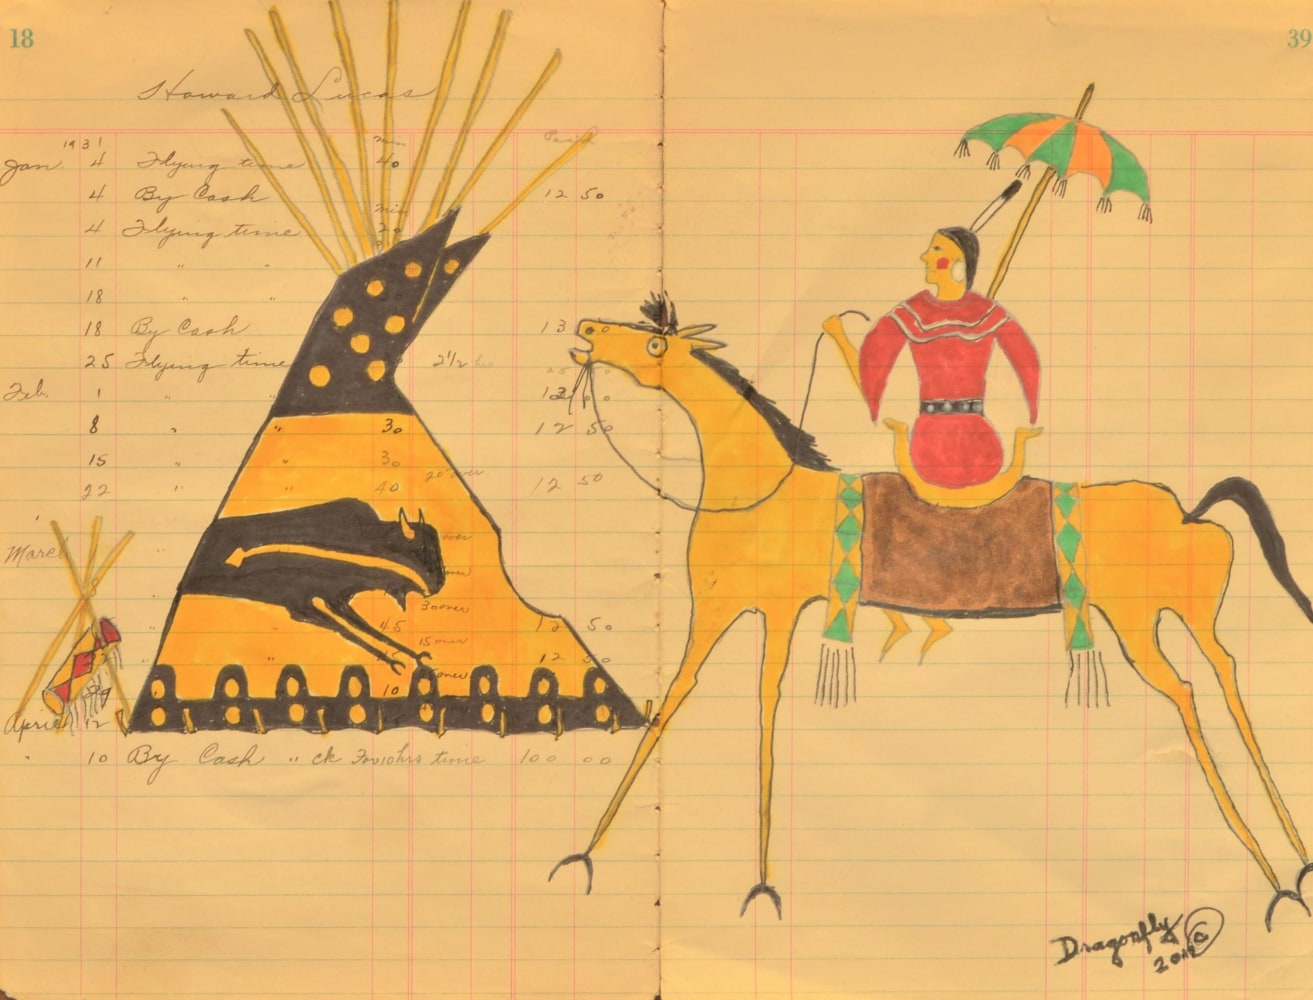 18
39
Howard Lucas
1931 min Paid
Jan. 4 Flying time 40
4 By Cash 12 50
min
4 Flying time 20
11 " "
18 " "
18 By Cash 13 0
25 Flying time 2 1/2 hrs
Feb. 1 " "
8 " " 30 12 50
15 " " 30
20 over
22 " " 40 12 50
over
March
over
30 over
" 45 12 50
15 over
" " 45 12 50
over
10
April 12
" 10 By Cash " ck For 10 hrs time 100 00
Dragonfly ©